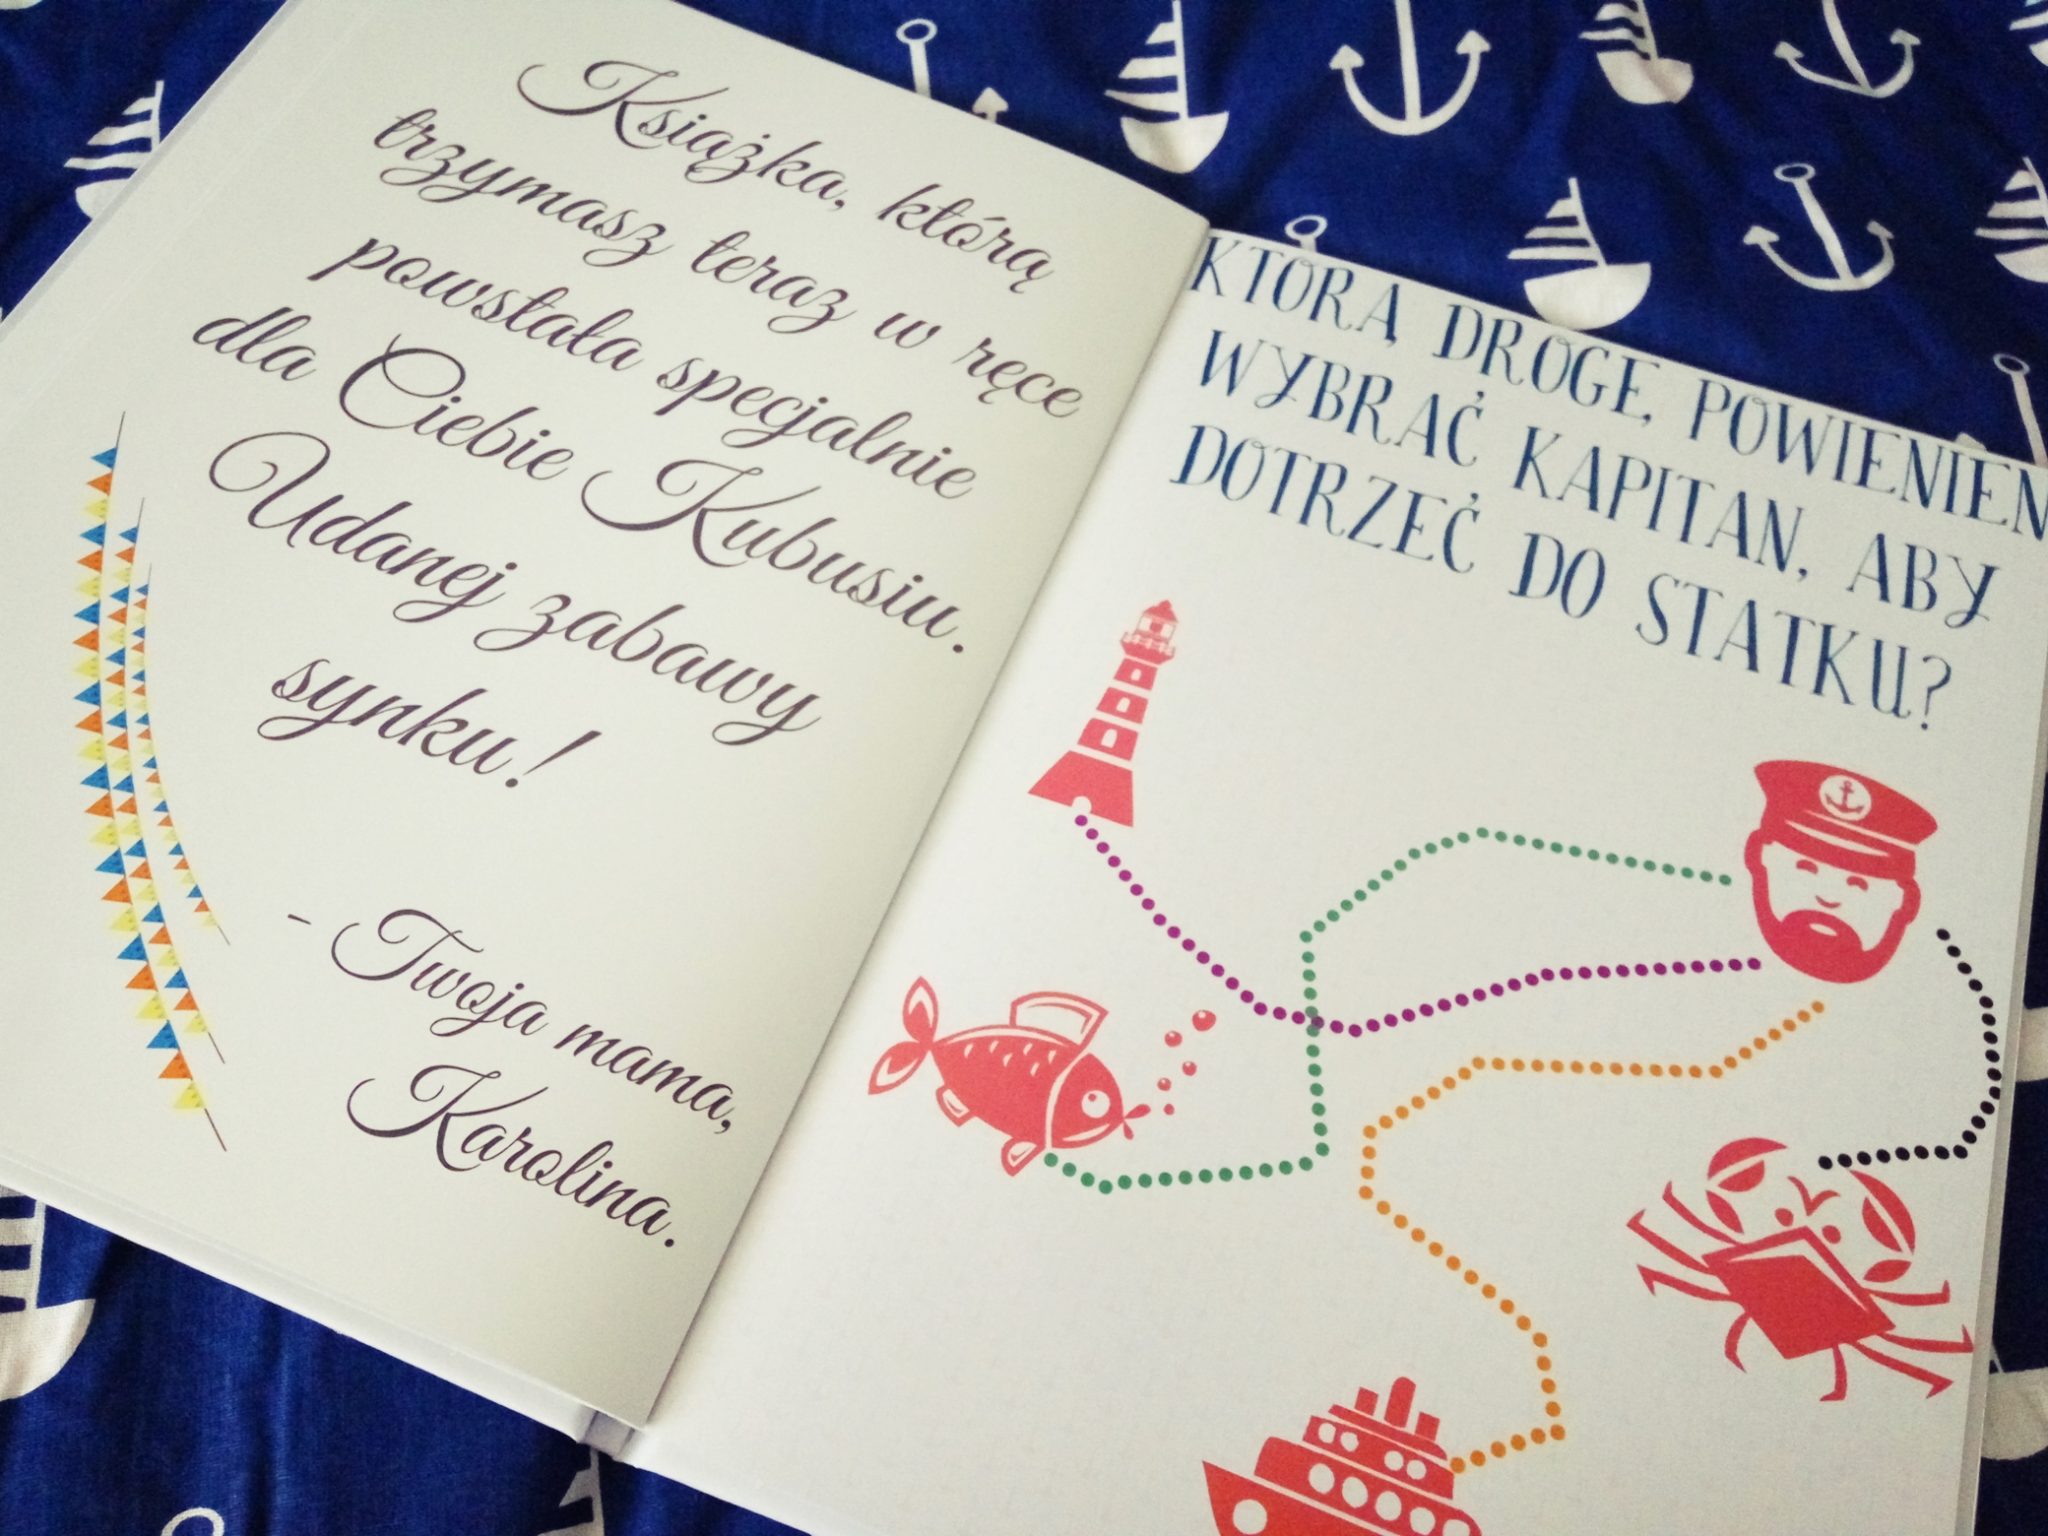 Książka, którą
trzymasz teraz w ręce
powstała specjalnie
dla Ciebie Kubusiu.
Udanej zabawy
synku!
- Twoja mama,
Karolina.
KTÓRĄ DROGĘ POWIENIEN
WYBRAĆ KAPITAN, ABY
DOTRZEĆ DO STATKU?